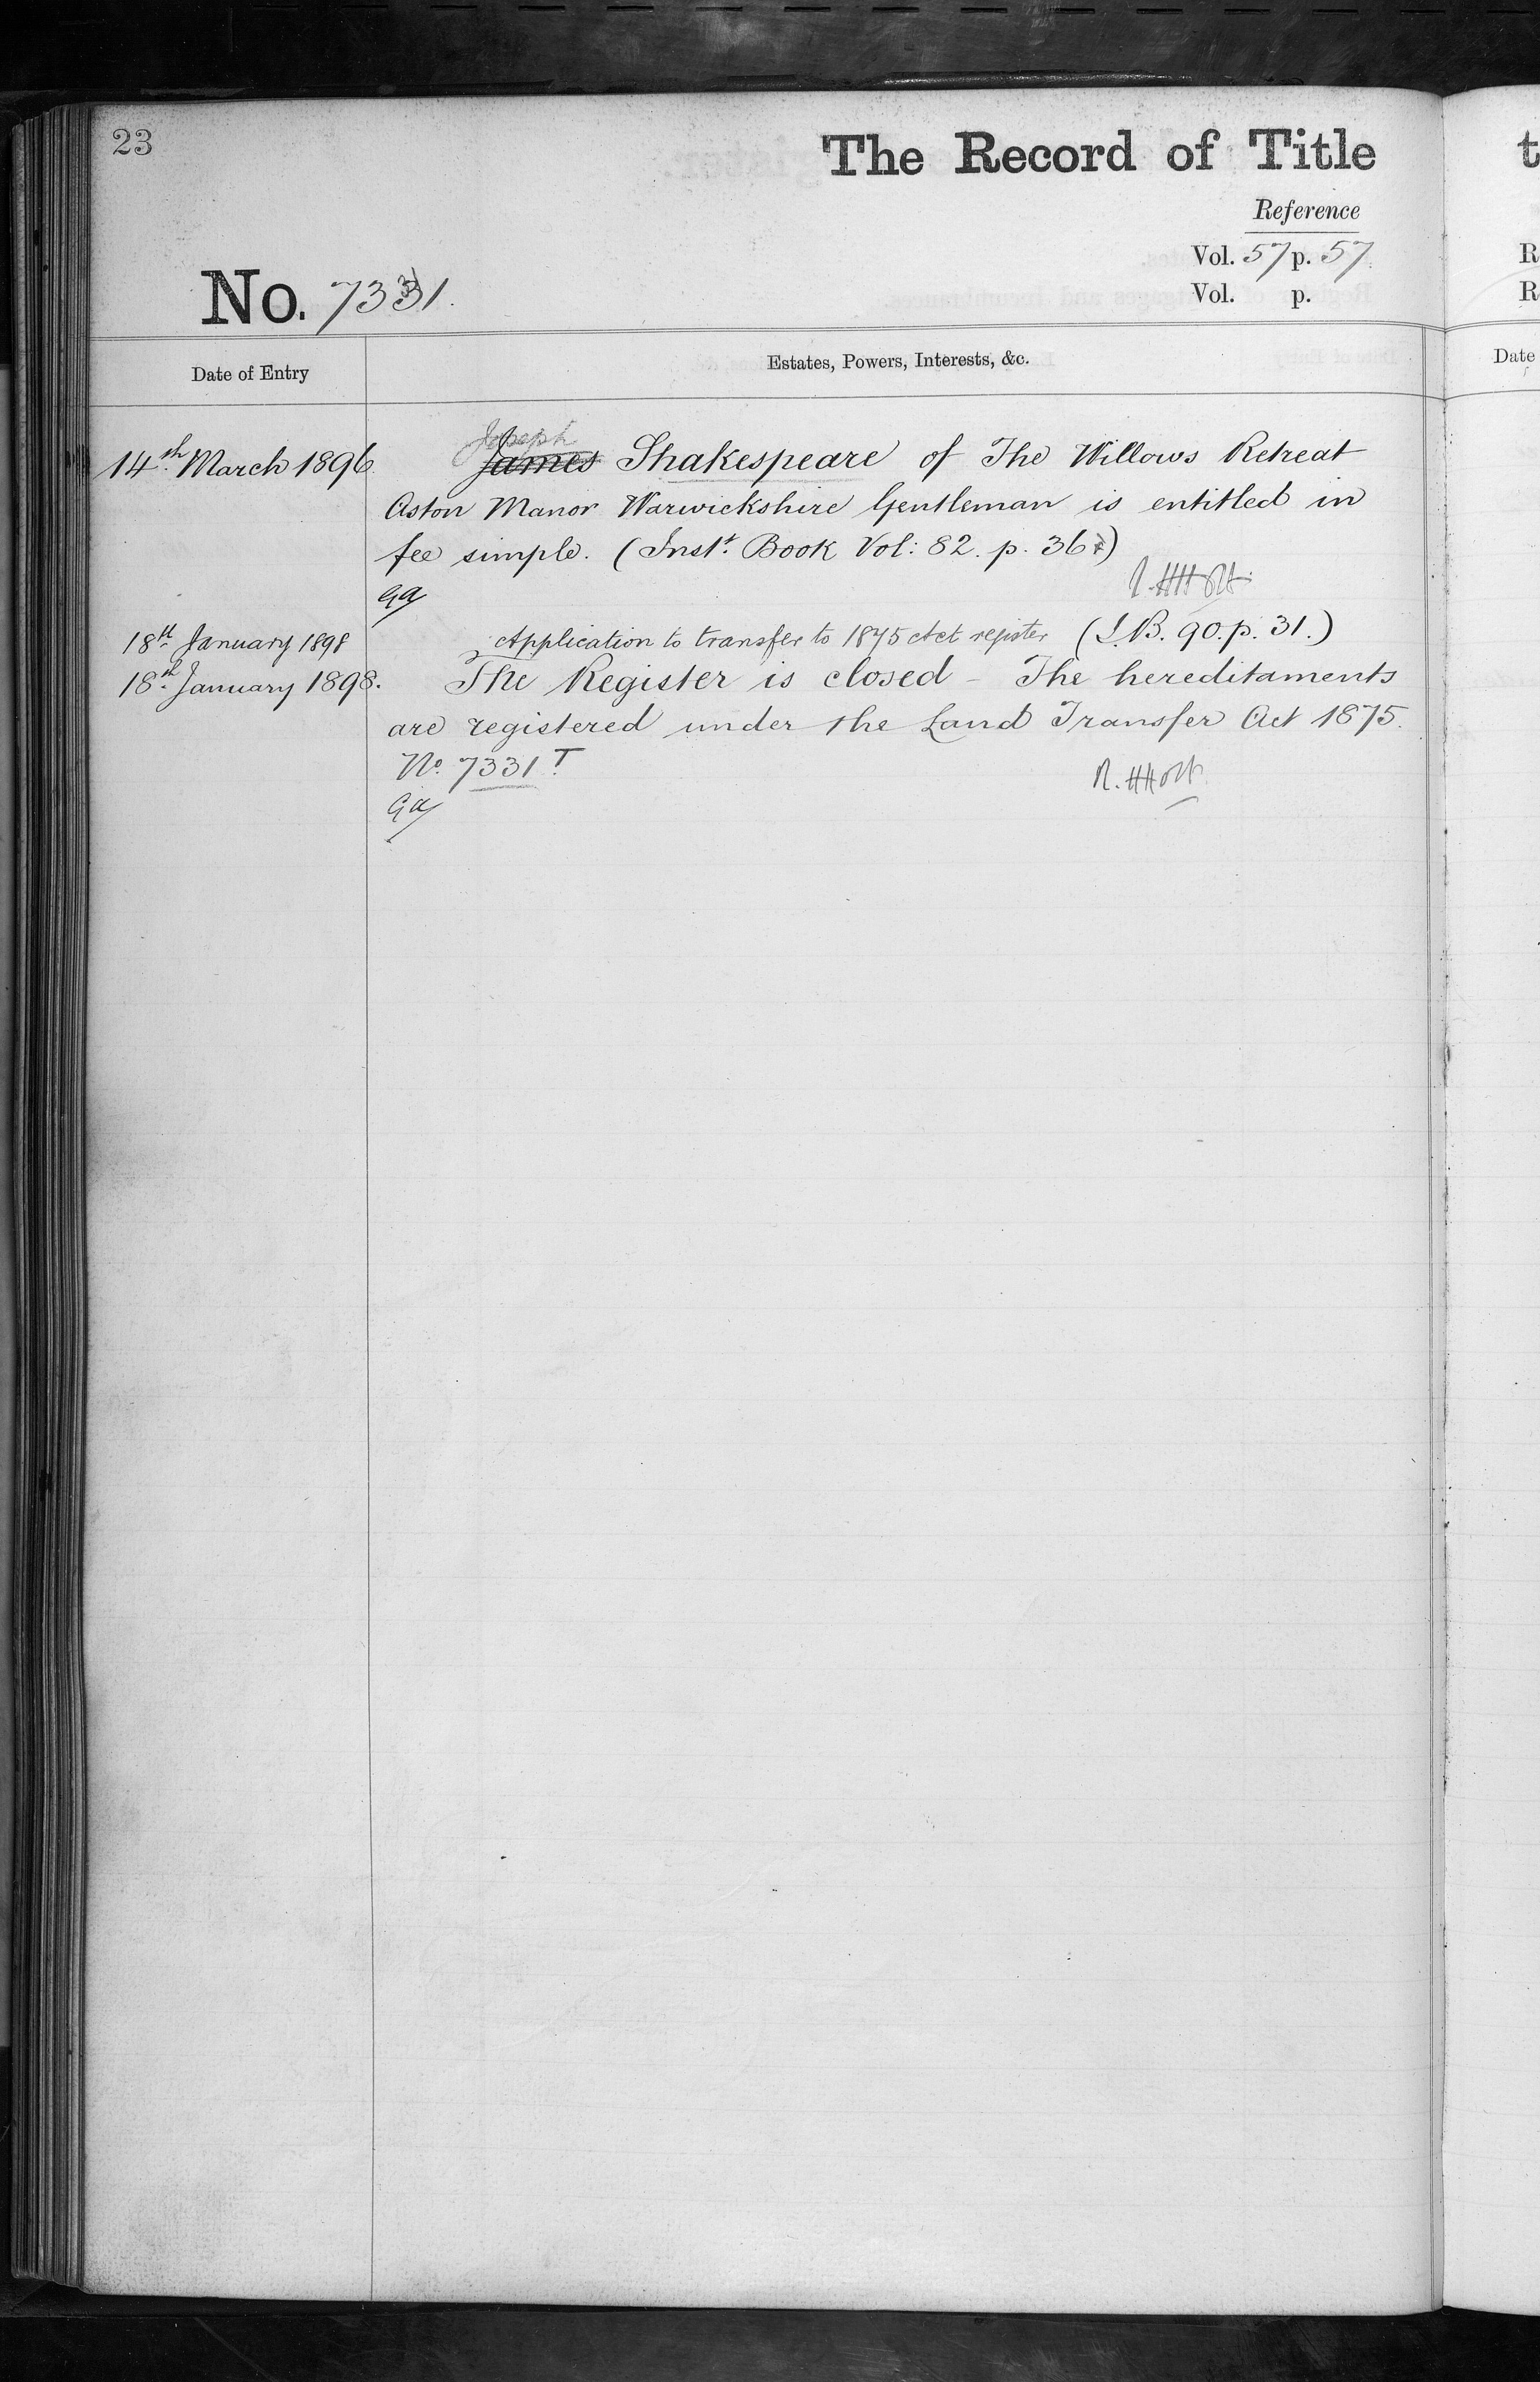 23
The Record of Title
Reference
Vol. 57 p. 57
No. 7331.
Vol. p.
Date of Entry
Estates, Powers, Interests, &c.
Joseph
14th March 1896
James Shakespeare of The Willows Retreat
Aston Manor Warwickshire Gentleman is entitled in
fee simple. (Inst. Book Vol: 82. p. 36)
Ga
18th January 1898
Application to transfer to 1875 Act register (I.B. 90. p. 31.)
18th January 1898.
The Register is closed - The hereditaments
are registered under the Land Transfer Act 1875.
No. 7331 T
Ga
t
R
R
Date